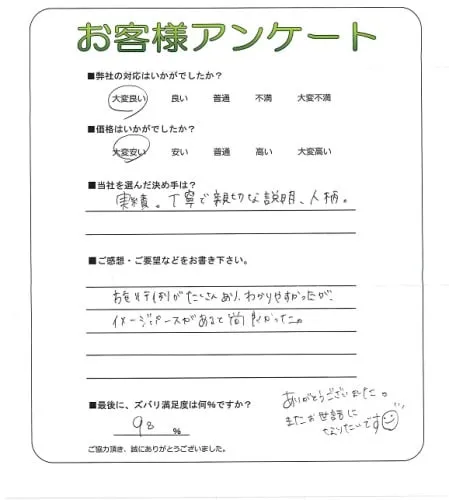 お客様アンケート
■弊社の対応はいかがでしたか？
大変良い 良い 普通 不満 大変不満
■価格はいかがでしたか？
大変安い 安い 普通 高い 大変高い
■当社を選んだ決め手は？
実績。丁寧で親切な説明、人柄。
■ご感想・ご要望などをお書き下さい。
がたくさんあり、わかりやすかったが、
イメージパースがあると尚良かった。
■最後に、ズバリ満足度は何％ですか？
98 ％
ありがとうございました。
またお世話に
なりたいです
ご協力頂き、誠にありがとうございました。